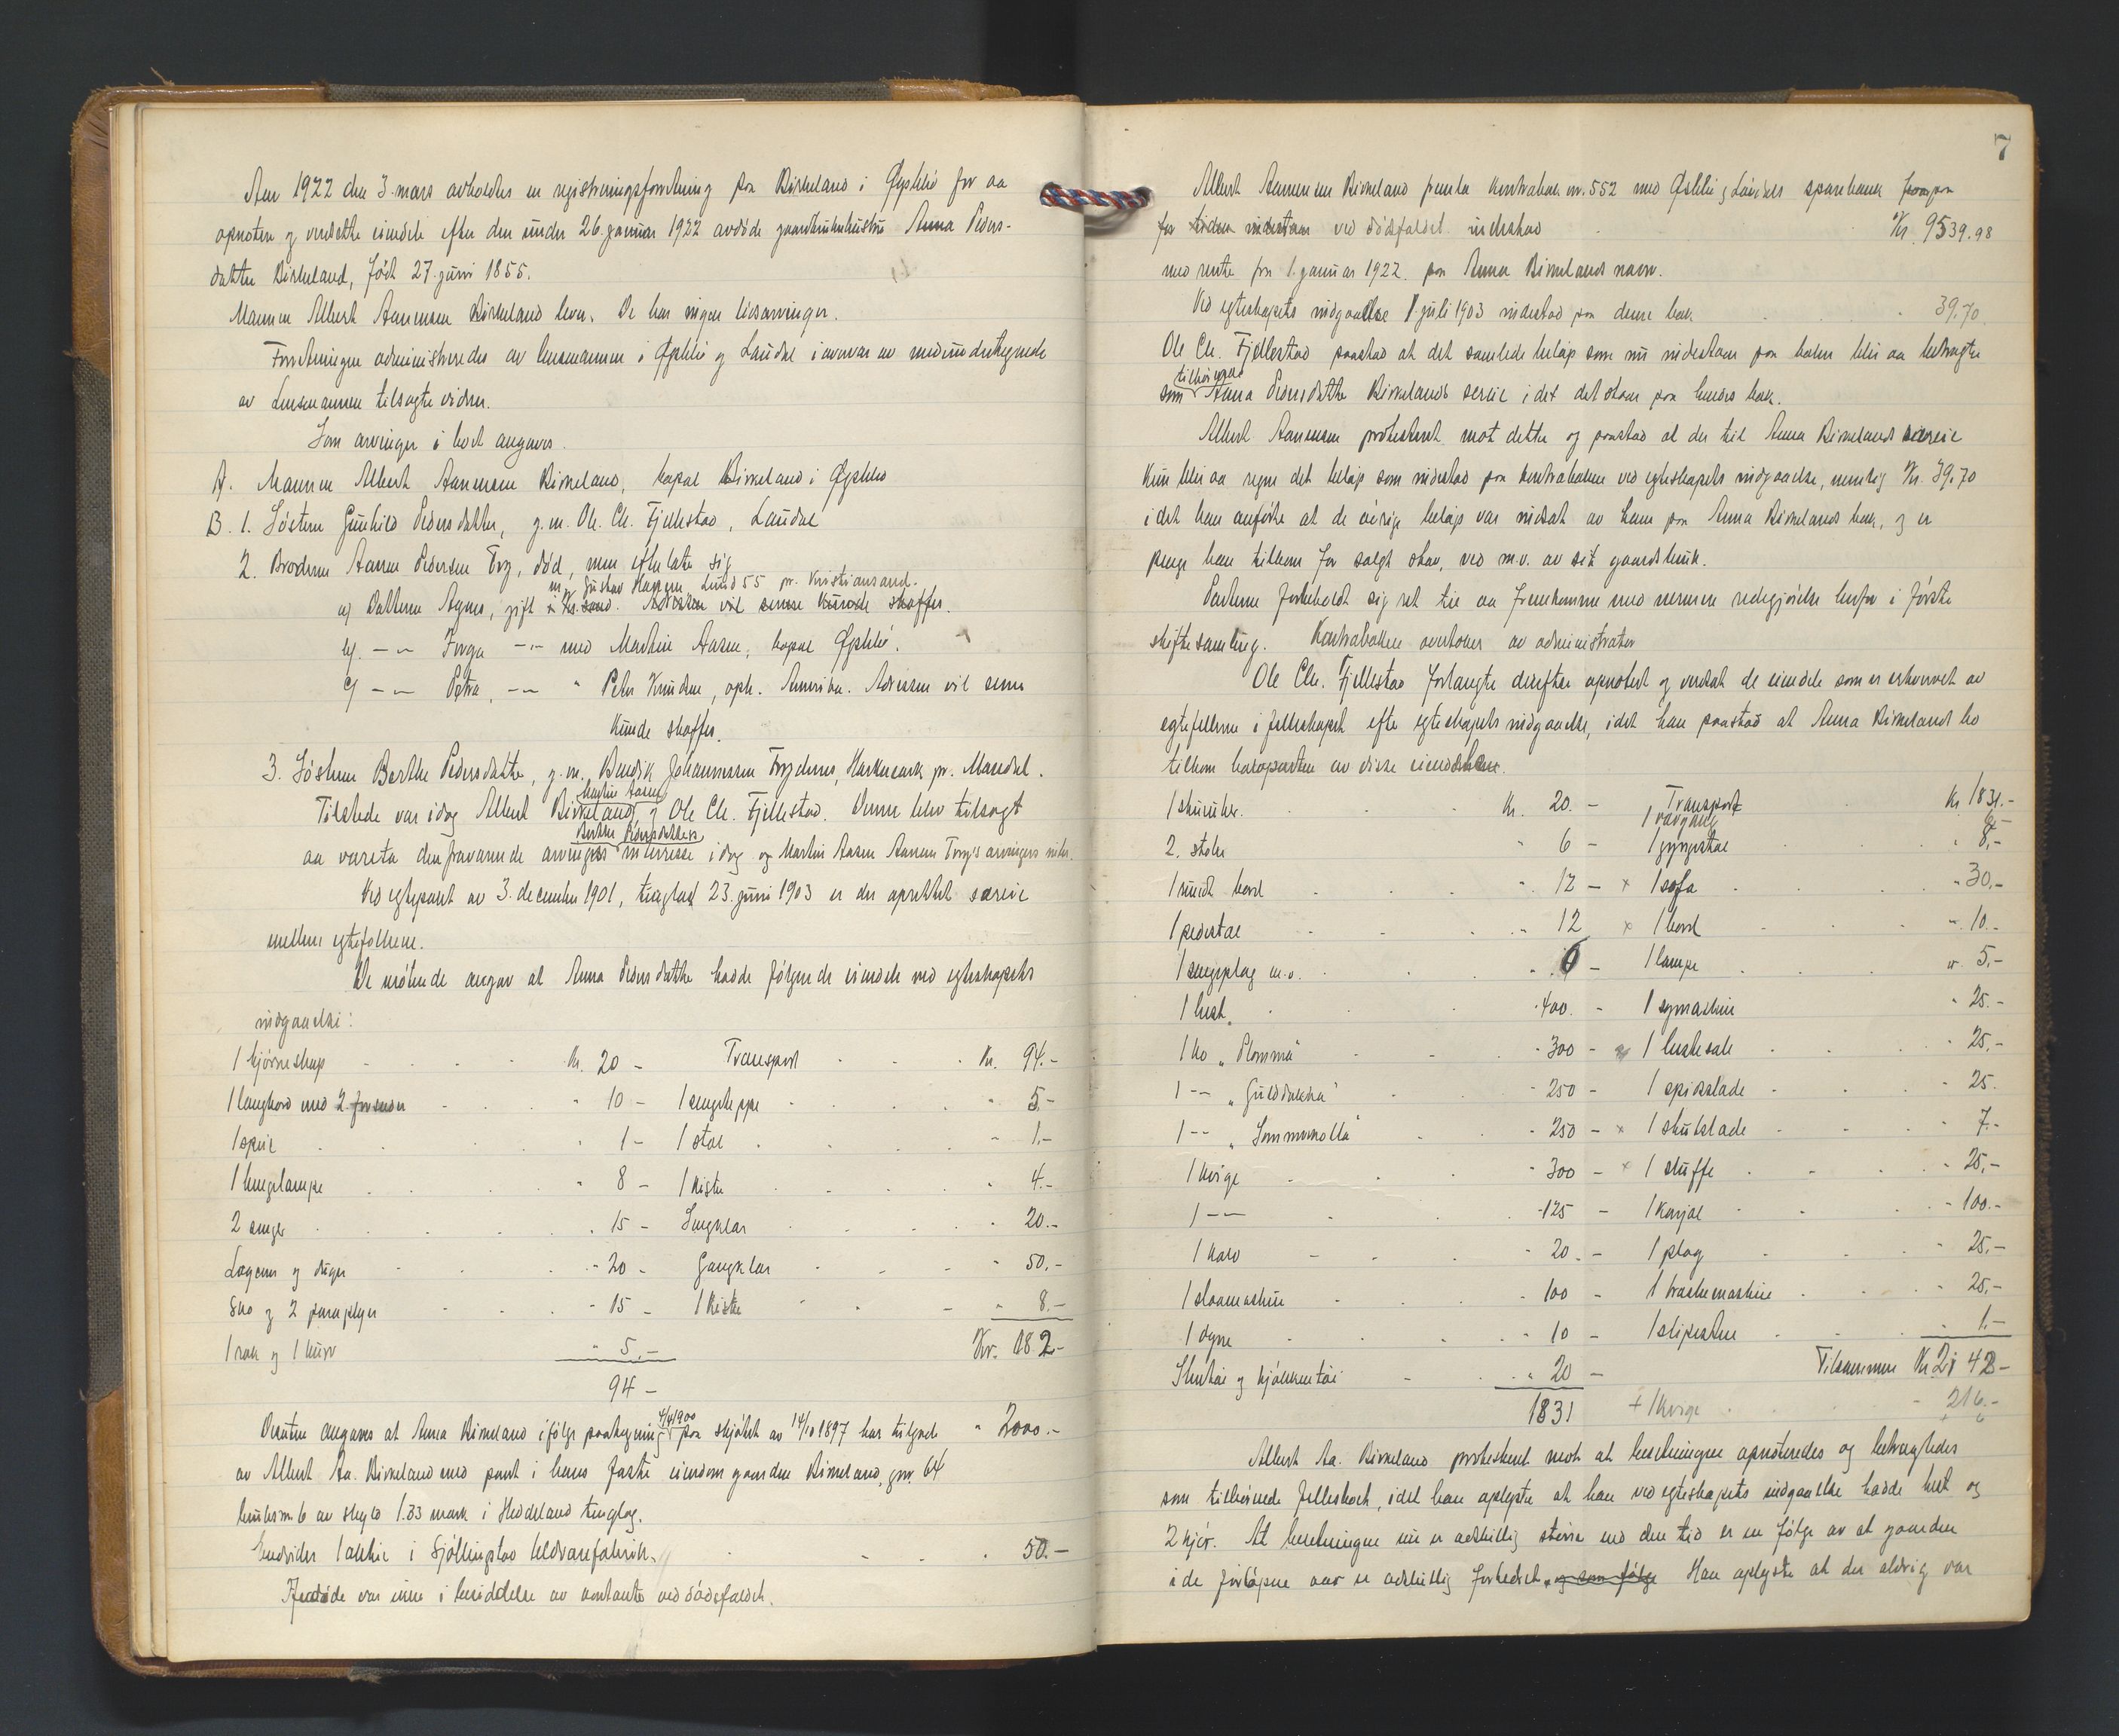 Aar 1922 den 3. mars avholdtes en registreringsforretning paa Birkeland i Øyslebø for aa
opnotere og verdsette eiendele efter den under 26. januar 1922 avdøde gaardbrukerhustru Anna Peders-
datter Birkeland, født 27. juni 1855.
Manden Albert Aanensen Birkeland lever. De har ingen livsarvinger.
Forretningen administreredes av lensmannen i Øyslebø og Laudal i overvær av medundertegnede
av Lensmannen tilsagte vidner.
Som arvinger i boet angaves.
A. Mannen Albert Aanensen Birkeland, bopæl Birkeland i Øyslebø
B. 1. Søsteren Gunhild Pedersdatter, g.m. Ole Chr. Fjellestad, Laudal
2. Broderen Aanen Pedersen Tryg, død, men efterlater sig
m. Gustav Hansen Lund 55 pr. Kristiansand.
a) Datteren Agnes, gift i Kr.sand. Adressen vil senere kunde skaffes.
b) -"- Inga -"- med Martin Aasen, bopæl Øyslebø.
c) -"- Petra, -"- " Peder Knudsen, oph. Amerika. Adressen vil senere
kunde skaffes.
3. Søsteren Berthe Pedersdatter, g.m. Bendik Johannessen Tryderus, Harkmark pr. Mandal.
Martin Aasen
Tilstede var idag Albert Birkeland, og Ole Chr. Fjellestad. Denne blev tilsagt
Berthe Pedersdatters
aa vareta den fraværende arvinges interesse idag og Martin Aasen Aanen Trygs arvingers inter.
Ved egtepakt av 3. december 1901, tinglyst 23. juni 1903 er der oprettet særeie
mellem egtefollkene.
De møtende angav at Anna Pedersdatter hadde følgende eiendele ved egteskapets
indgaaelse:
1 hjørneskap Kr. 20 - Transport Kr. 94.-
1 langbord med 2 " 10 - 1 sengeteppe " 5.-
1 speil 1 - 1 stol " 1.-
1 hengelampe " 8 - 1 kiste " 4.-
2 senger " 15 - Sengklær " 20.-
Lagener og duger " 20 - Gangklær " 50.-
Sko og 2 paraplyer " 15 - 1 kiste " 8.-
1 rok og 1 kurv " 5.- Kr. 182-
94 -
4/4 1900
Desuten angaves at Anna Birkeland ifølge paategning paa skjøtet av 14/10 1897 har tilgode " 2000.-
av Albert Aa. Birkeland med pant i hans faste eiendom gaarden Birkeland, gnr. 64
bruksnr. 6 av skyld 1.33 mark i Heddeland tinglag.
Endvidere 1 aktie i Sjøllingstad Uldvarefabrik. 50.-
Avdøde var inne i besiddelse av kontanter ved dødsfaldet.
7
Albert Aanensen Birkeland fremla kontrabok nr. 552 med Øslebø og Laudals sparebank hvorpaa
for tiden indestaar ved dødsfaldet indestod Kr. 9539.98
med rente fra 1. januar 1922. paa Anna Birkelands navn.
Ved egteskapets indgaaelse 1. juli 1903 indestod paa denne bok 39.70
Ole Chr. Fjellestad paastod at det samlede beløp som nu indestaar paa boken blir aa betragte
tilhørende
som Anna Pedersdatter Birkelands særeie idet det staar paa hendes bok.
Albert Aanensen protesterte mot dette og paastod at der til Anna Birkelands særeie
kun blir aa regne det beløp som indestod paa kontraboken ved egteskapets indgaaelse, nemlig Kr. 39.70
idet han anførte at de øvrige beløp var indsat av ham paa Anna Birkelands bok, og er
penge han tilkom for salgt skav, ved m.v. av sit gaardsbruk.
Parterne forbeholdt sig ret til aa fremkomme med nærmere redegjørelse herfor i første
skiftesamling. Kontraboken overtokes av administrator
Ole Chr. Fjellestad forlangte derefter opnotert og verdsat de eiendele som er erhvervet av
egtefellerne i fellesskapet efter egteskapets indgaaelse, idet han paastod at Anna Birkelands bo
tilkom halvparten av disse eiendeler.
1 skurekr. Kr. 20. - Transport Kr. 1831.-
2. stoler " 6 - 1 gyngestol " 8,-
1 rundt bord " 12 - x 1 sofa " 30,-
1 pedestal " 12 x 1 bord " 10.-
1 sengeplag m.v. " 6 - 1 lampe " 5,-
1 hest " 400. - 1 symaskine " 25.-
1 ko "Plomma" " 300 - 1 hestesale " 25,-
1 -"- "Gulddokka" " 250 - 1 spidsslade " 25.
1 -"- "Sommerkolla" " 250 - x 1 skutslade " 7.-
1 kvige " 300 - x 1 sluffe " 25,-
1 -"- " 125 - 1 karjol " 100.-
1 kalv " 20. - 1 plog " 25,-
1 slaamaskine " 100 - 1 treskemaskine " 25,-
1 dyne " 10 - 1 slipesten " 1.-
Stentøi og kjøkkentøi " 20 - Tilsammen Kr 2142-
1831 + 1 kvige 216.-
Albert Aa. Birkeland protesterte mot at besetningen opnoteredes og betragtedes
som tilhørende fellesboet, idet han oplyste at han ved egteskapets indgaaelse hadde hest og
2 kjør. At besetningen nu er adskillig større end den tid er en følge av at gaarden
i de forløpne aar er adskillig forbedret, og som følge Han oplyste at der aldrig var